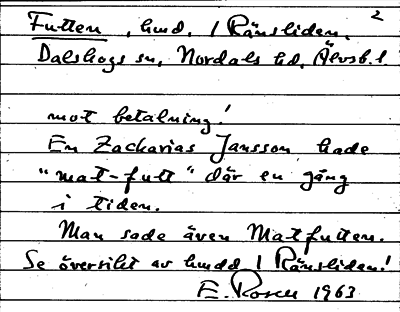 2
Futten, hmd. i Ränsliden.
Dalskogs sn, Nordals hd, Älvsb. l
mot betalning!
En Zackarias Jansson hade
"mat-futt" där en gång
i tiden.
Man sade även Matfutten.
Se översikt av hmdd i Ränsliden!
E. Rosell 1963